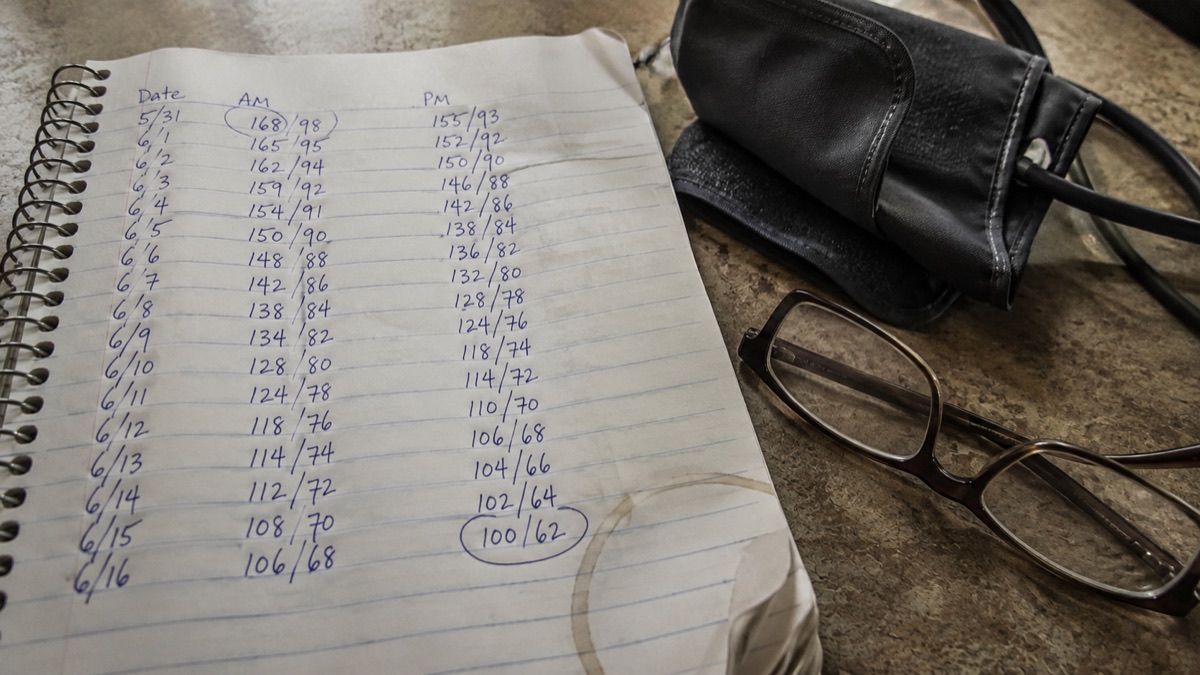 Date AM PM
5/31 168/98 155/93
6/1 165/95 152/92
6/2 162/94 150/90
6/3 159/92 146/88
6/4 154/91 142/86
6/5 150/90 138/84
6/6 148/88 136/82
6/7 142/86 132/80
6/8 138/84 128/78
6/9 134/82 124/76
6/10 128/80 118/74
6/11 124/78 114/72
6/12 118/76 110/70
6/13 114/74 106/68
6/14 112/72 104/66
6/15 108/70 102/64
6/16 106/68 100/62